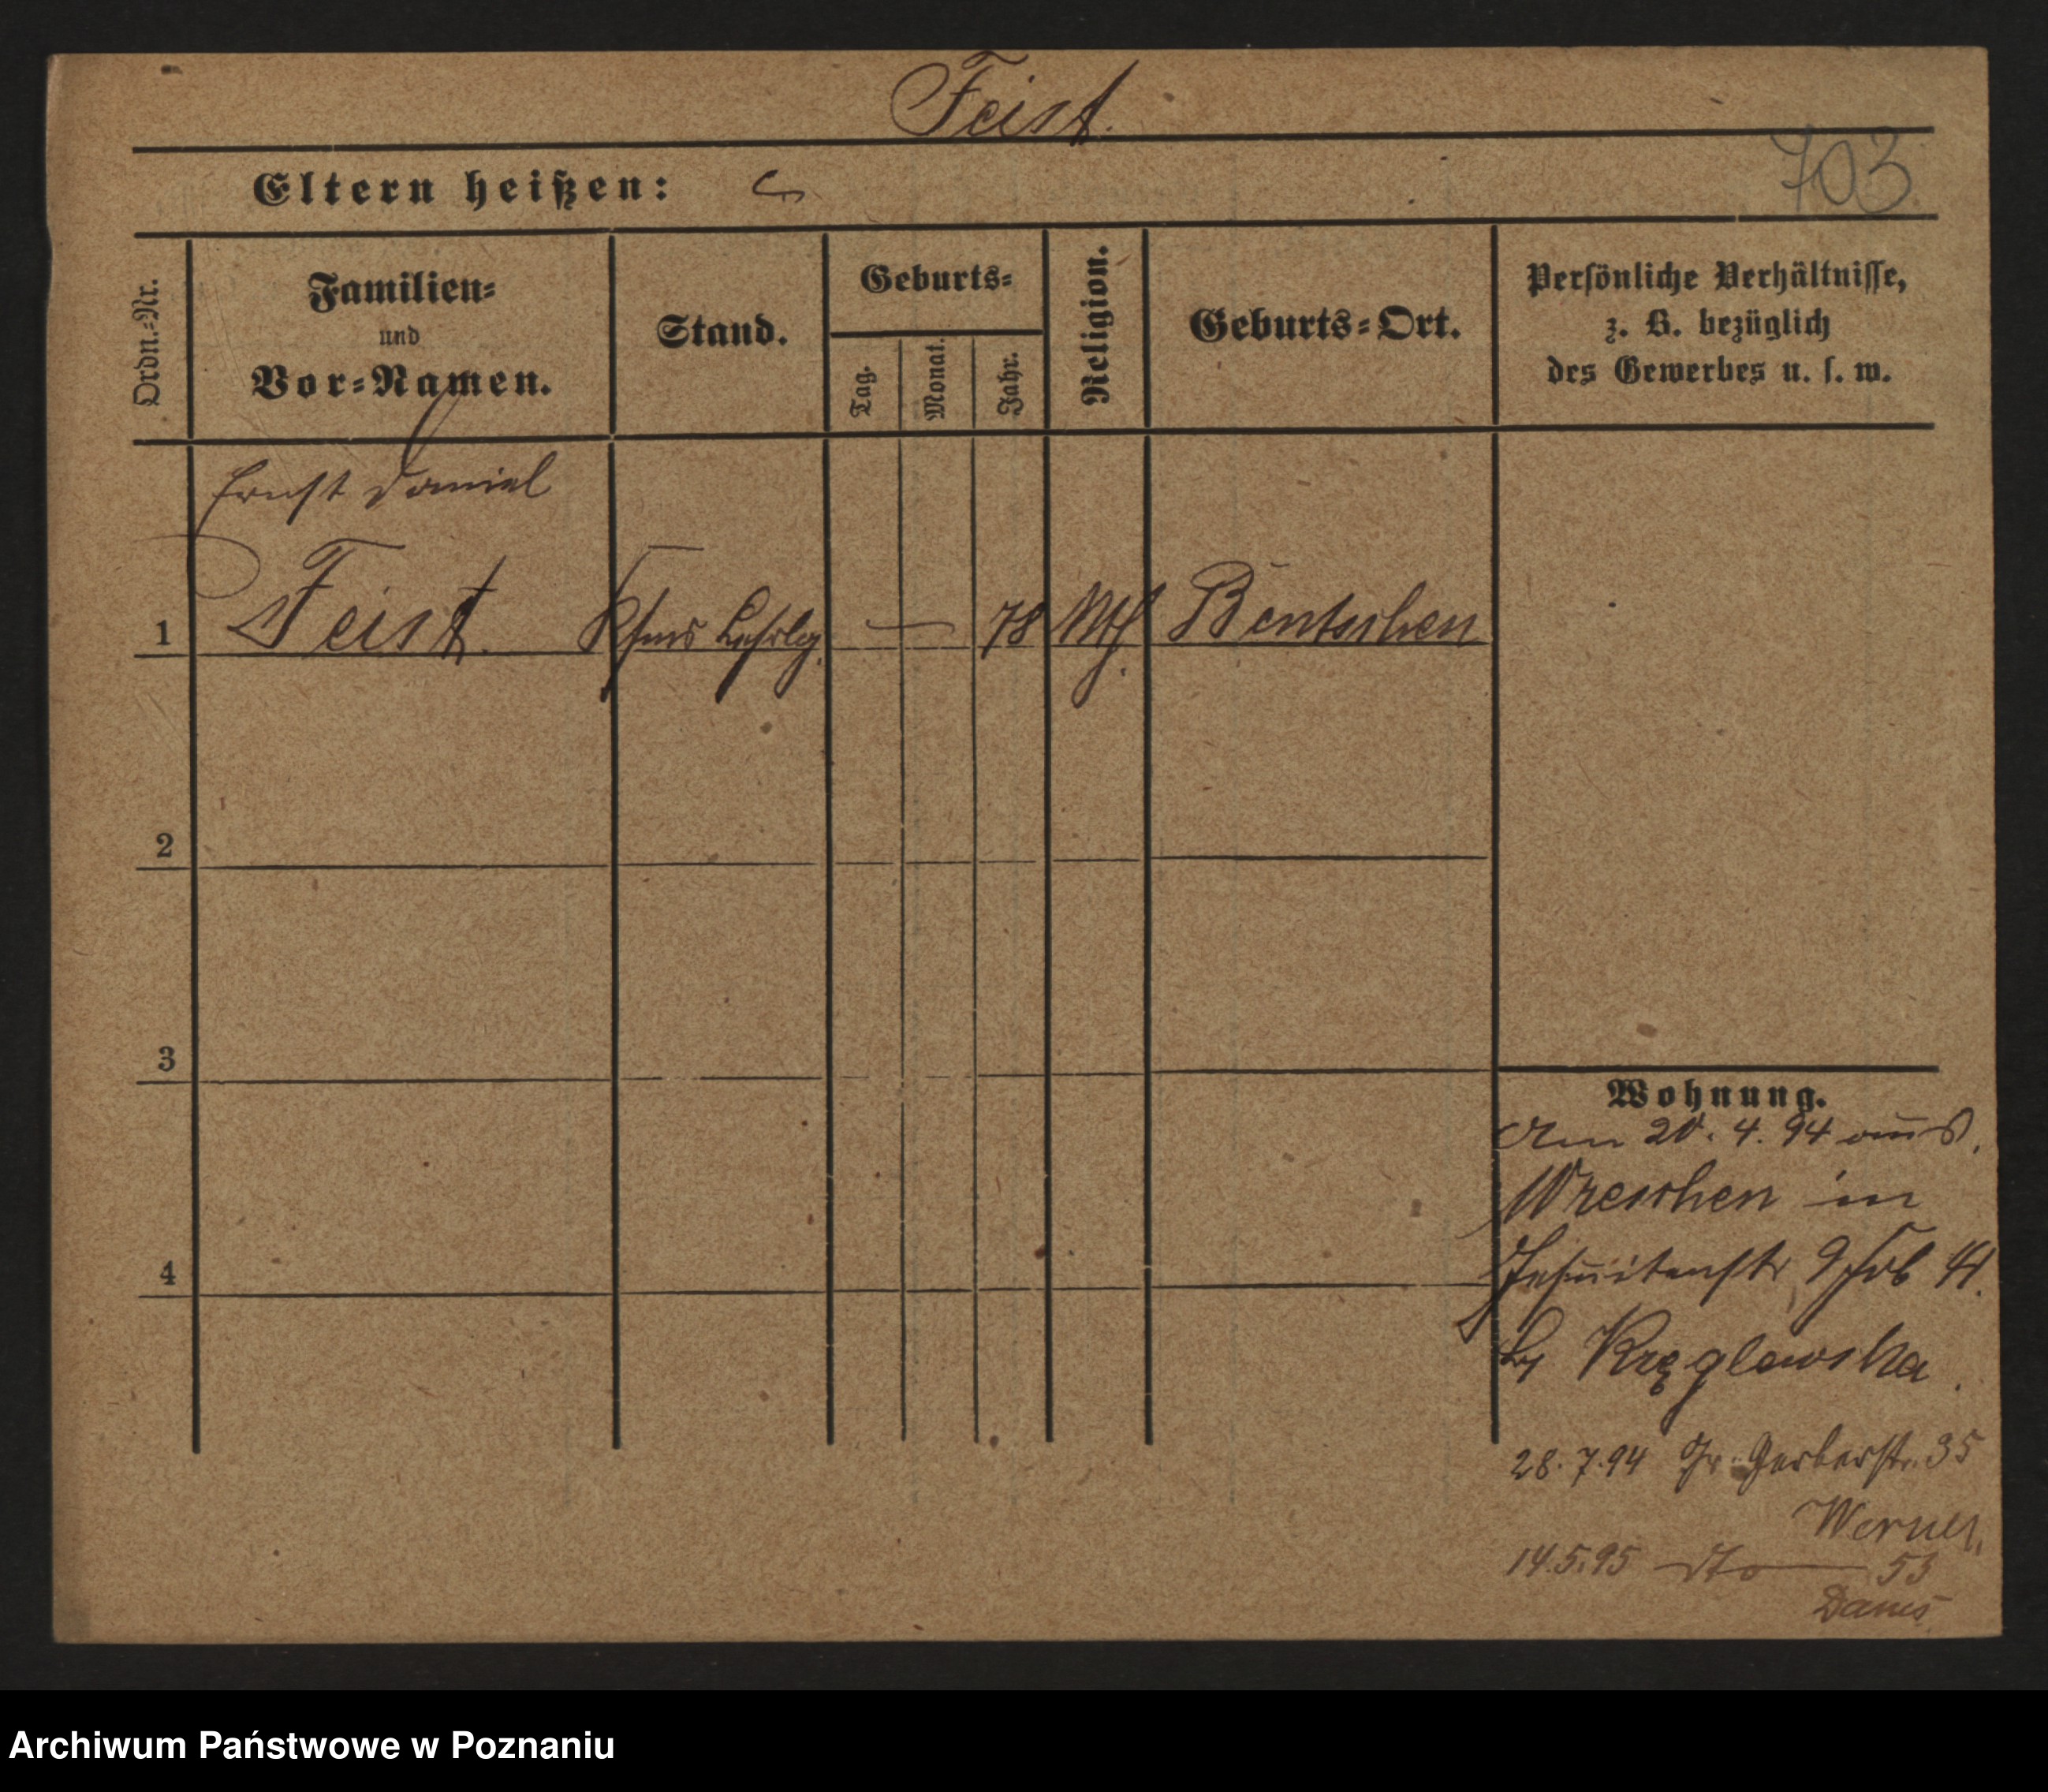 Feist.
703
Eltern heißen:
Ordn.-Nr.
Familien-
und
Vor-Namen.
Stand.
Geburts-
Tag.
Monat.
Jahr.
Religion.
Geburts-Ort.
Persönliche Verhältnisse,
z. B. bezüglich
des Gewerbes u. s. w.
Ernst Daniel
1 Feist. Kfms Lehrlg. — 78 Bentschen
2
3
4
Wohnung.
Am 20. 4. 94 aus
Wreschen in
Jesuitenstr 9
Kręglewska.
28. 7. 94 Gr. Gerberstr. 35
Werner,
14.5.95 dto 53
Archiwum Państwowe w Poznaniu